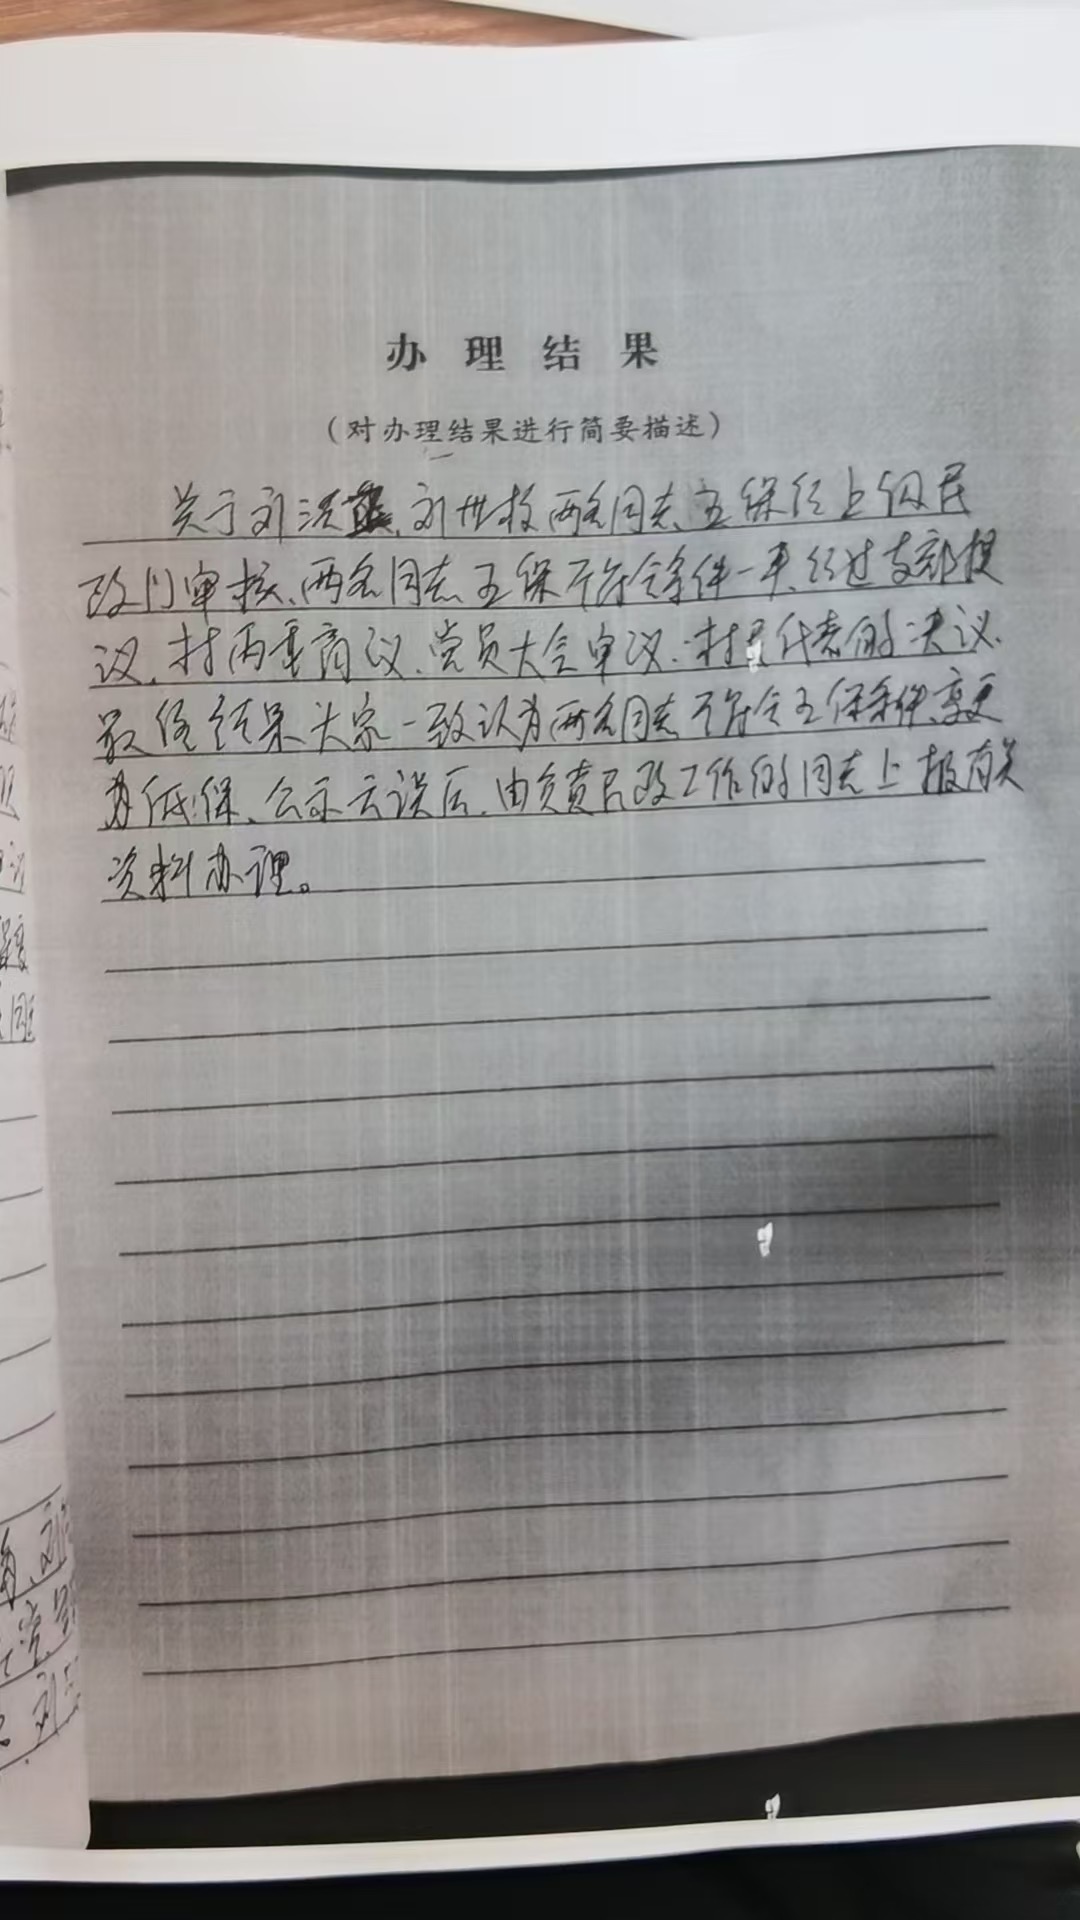 办理结果
(对办理结果进行简要描述)
关于刘洪 、刘世 两名同志五保经上级民
政门审核、两名同志五保不符合条件一事、经过支部提
议、村两委商议、党员大会审议、村民代表的决议、
最终结果大家一致认为两名同志不符合五保条件、变更
办低保、公示无误后、由负责民政工作的同志上报有关
资料办理。